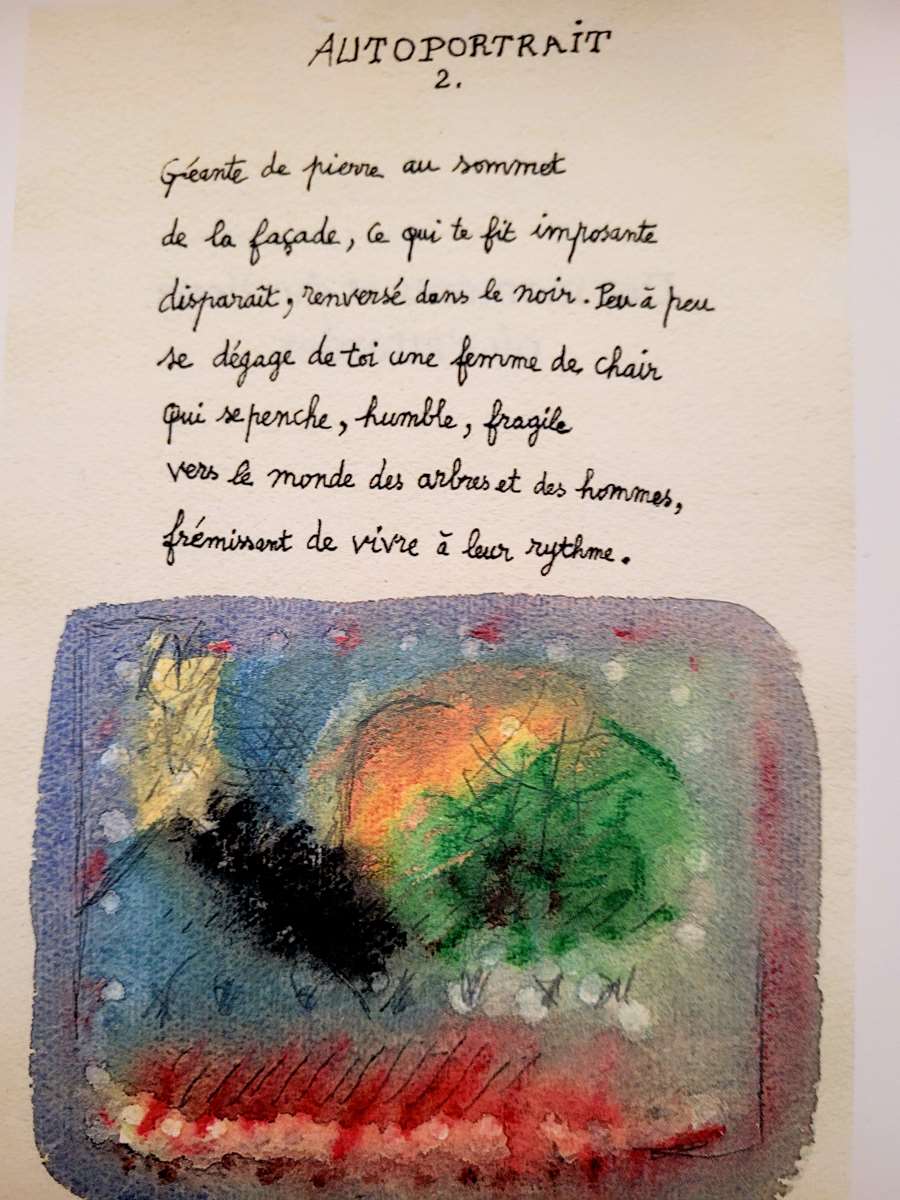 AUTOPORTRAIT
2.
Géante de pierre au sommet
de la façade, ce qui te fit imposante
disparaît, renversé dans le noir. Peu à peu
se dégage de toi une femme de chair
qui se penche, humble, fragile
vers le monde des arbres et des hommes,
frémissant de vivre à leur rythme.